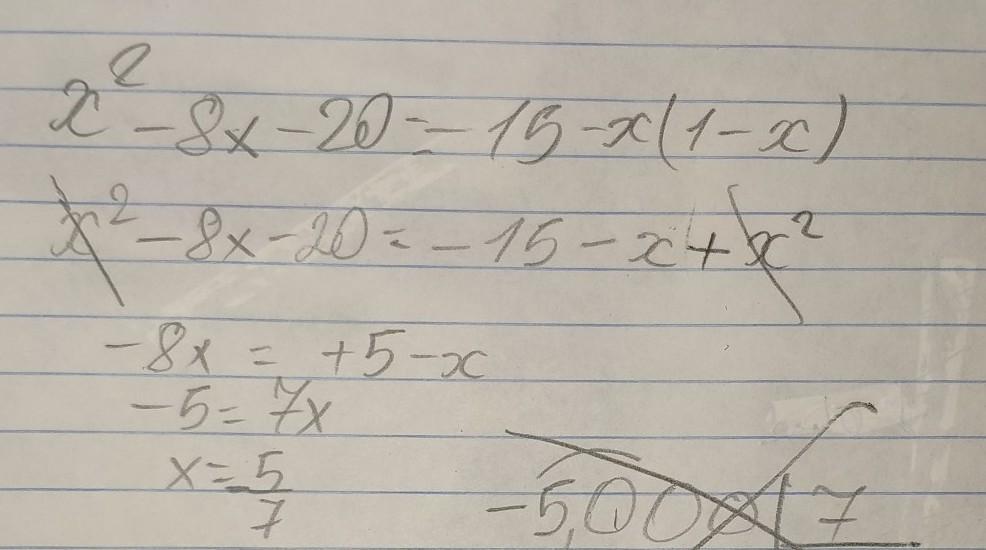 x² - 8x - 20 = -15 - x(1 - x)
x² - 8x - 20 = -15 - x + x²
-8x = +5 - x
-5 = 7x
x = -5/7
-5,000 | 7